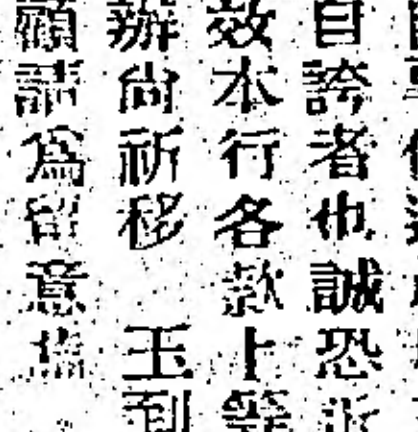 自誇者也誠恐
效本行各款上等
辦尚祈移 玉到
顧請爲留意